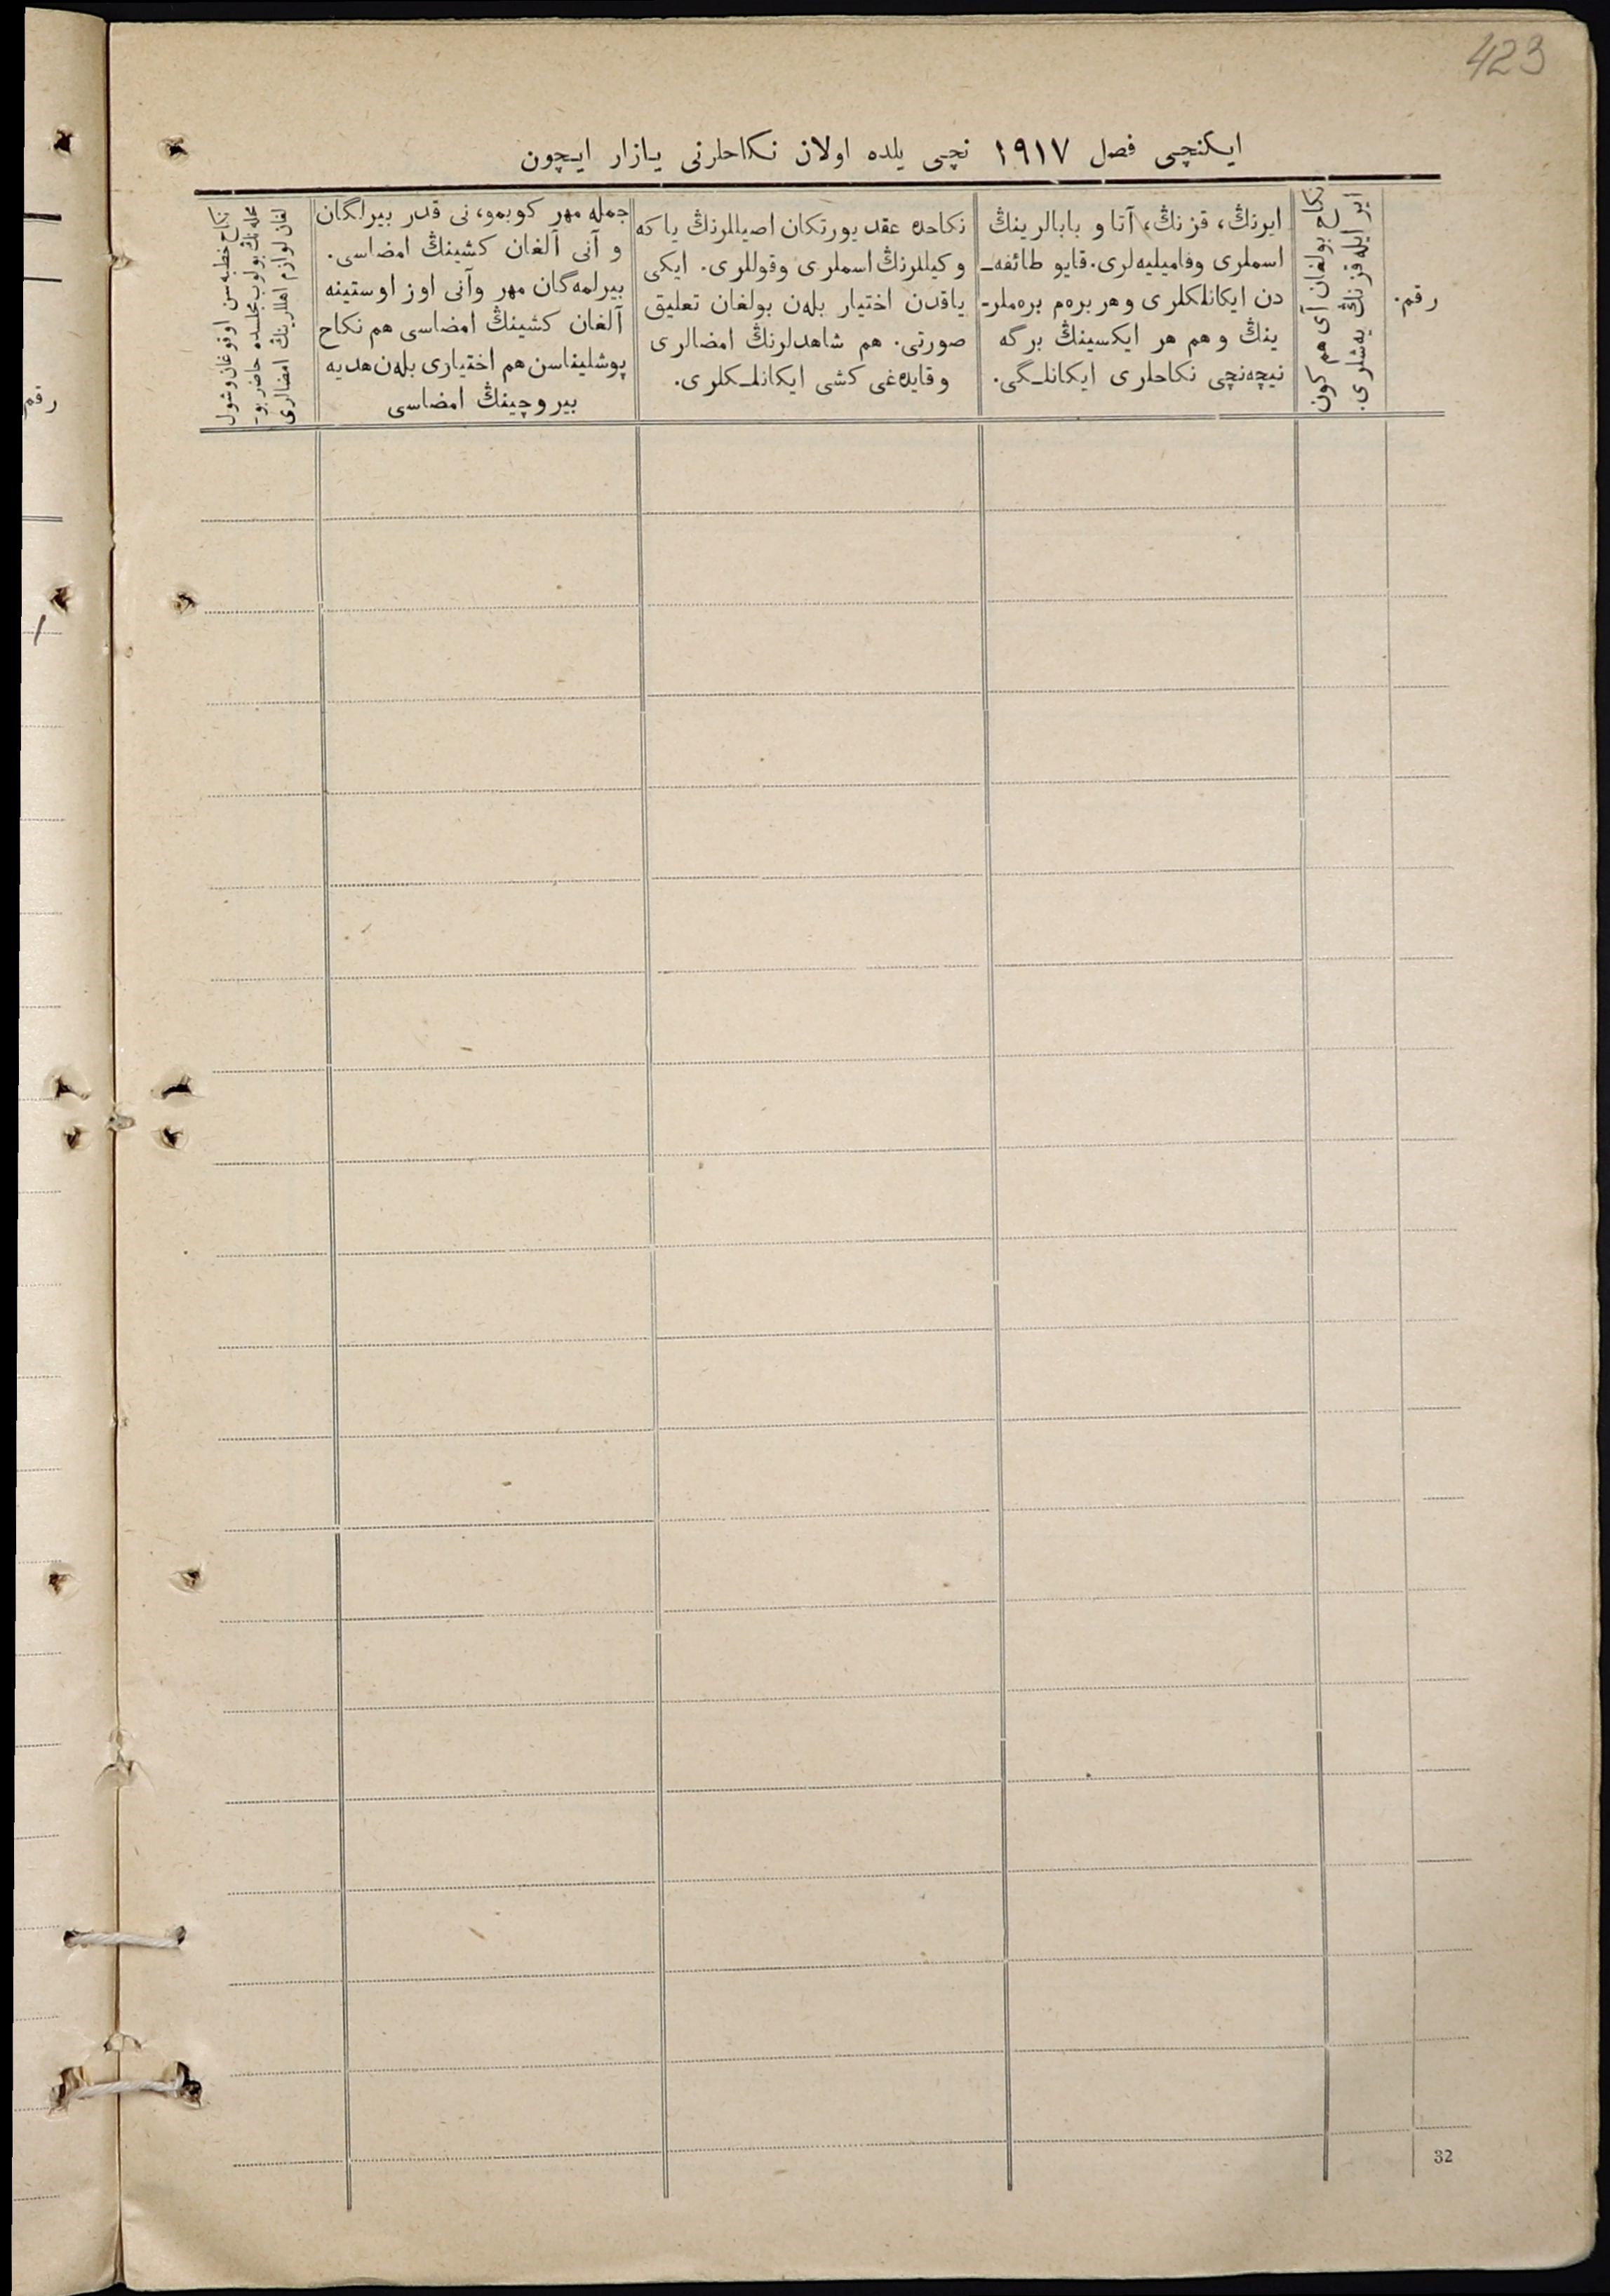 423
ایکنچی فصل ۱۹۱۷ نچی یلده اولان نکاحلرنی یازار ایچون
رقم.
نکاح بولغان آی هم کون
ایر ایله قزنڭ یه‌شلری.
ایرنڭ، قزنڭ، آتا و بابالرینڭ
اسملری وفامیلیه‌لری. قایو طائفه‌ـ
دن ایکانلکلری وهر بره‌م بره‌ملر-
ینڭ وهم هر ایکسینڭ برگه
نیچه‌نچی نکاحلری ایکانلـگی.
نکاحده عقد یورتکان اصیللرنڭ یا که
وکیللرنڭ اسملری وقوللری. ایکی
یاقدن اختیار بله‌ن بولغان تعلیق
صورتی. هم شاهدلرنڭ امضالری
وقایده‌غی کشی ایکانلـکلری.
جمله مهر کوبمو، نی قدر بیرلگان
و آنی آلغان کشینڭ امضاسی.
بیرلمه‌گان مهر وآنی اوز اوستینه
آلغان کشینڭ امضاسی هم نکاح
پوشلیناسن هم اختیاری بله‌ن هدیه
بیروچینڭ امضاسی
نکاح خطبه‌سن اوقوغان وشول
محله‌نڭ بولوب مجلسده حاضر بو-
لغان لوازم اهللرینڭ امضالری
رقم
32